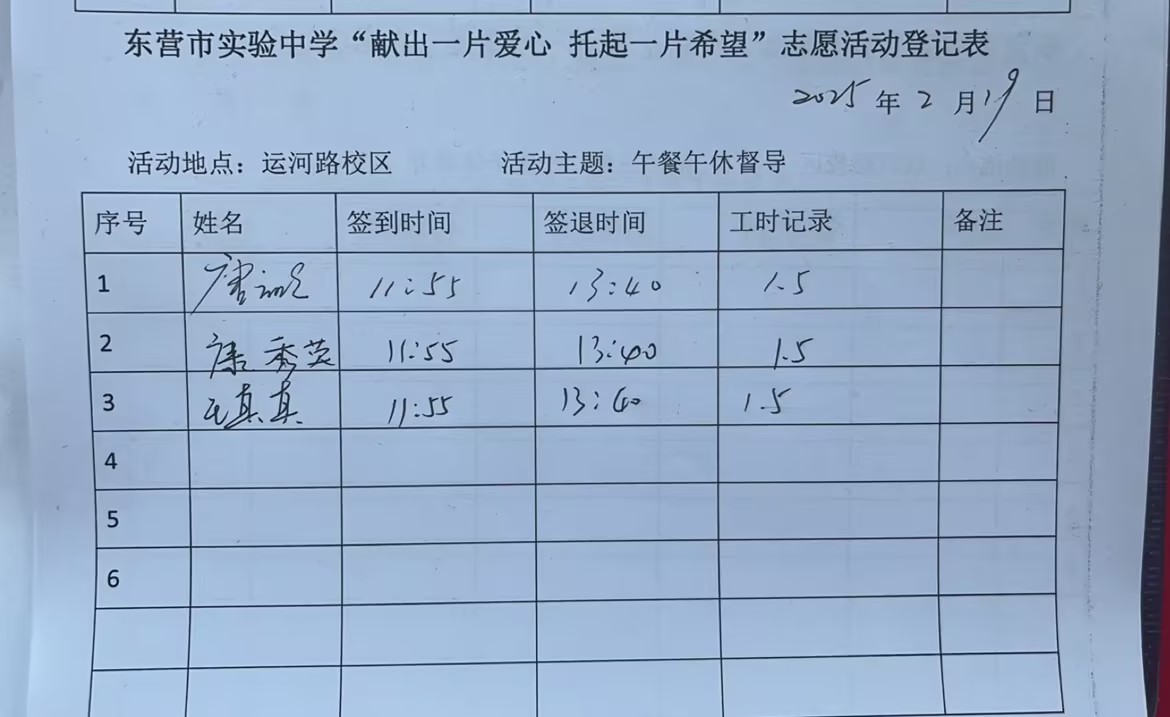 东营市实验中学“献出一片爱心 托起一片希望”志愿活动登记表
2025 年 2 月 19 日
活动地点：运河路校区 活动主题：午餐午休督导
序号 姓名 签到时间 签退时间 工时记录 备注
1 唐 11:55 13:40 1.5
2 唐秀荧 11:55 13:40 1.5
3 王真真 11:55 13:40 1.5
4
5
6